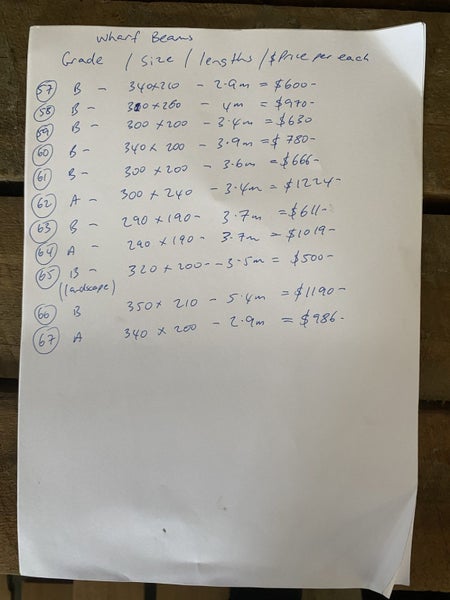 Wharf Beams
Grade / Size / lengths / $ Price per each
57 B - 340x210 - 2.9m = $600-
58 B - 200 - 4m = $970-
59 B - 300 x 200 - 3.4m = $630
60 B - 340 x 200 - 3.9m = $780-
61 B - 300 x 200 - 3.6m = $666-
62 A - 300 x 240 - 3.4m = $1224-
63 B - 290 x 190 - 3.7m = $611-
64 A - 290 x 190 - 3.7m = $1019-
65 B - 320 x 200 - - 3.5m = $500-
(landscape)
66 B 350 x 210 - 5.4m = $1190-
67 A 340 x 200 - 2.9m = $986-